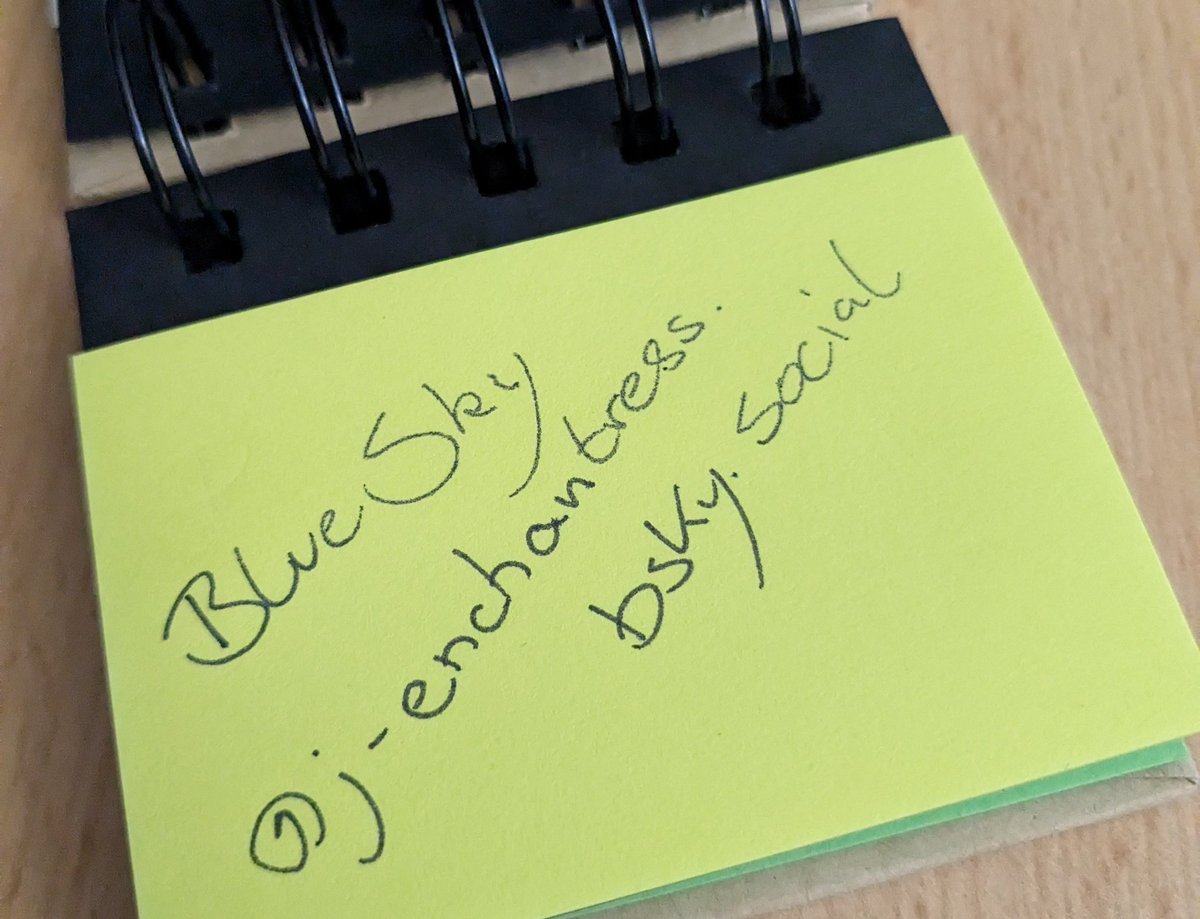 BlueSky
@j-enchantress.
bsky.social